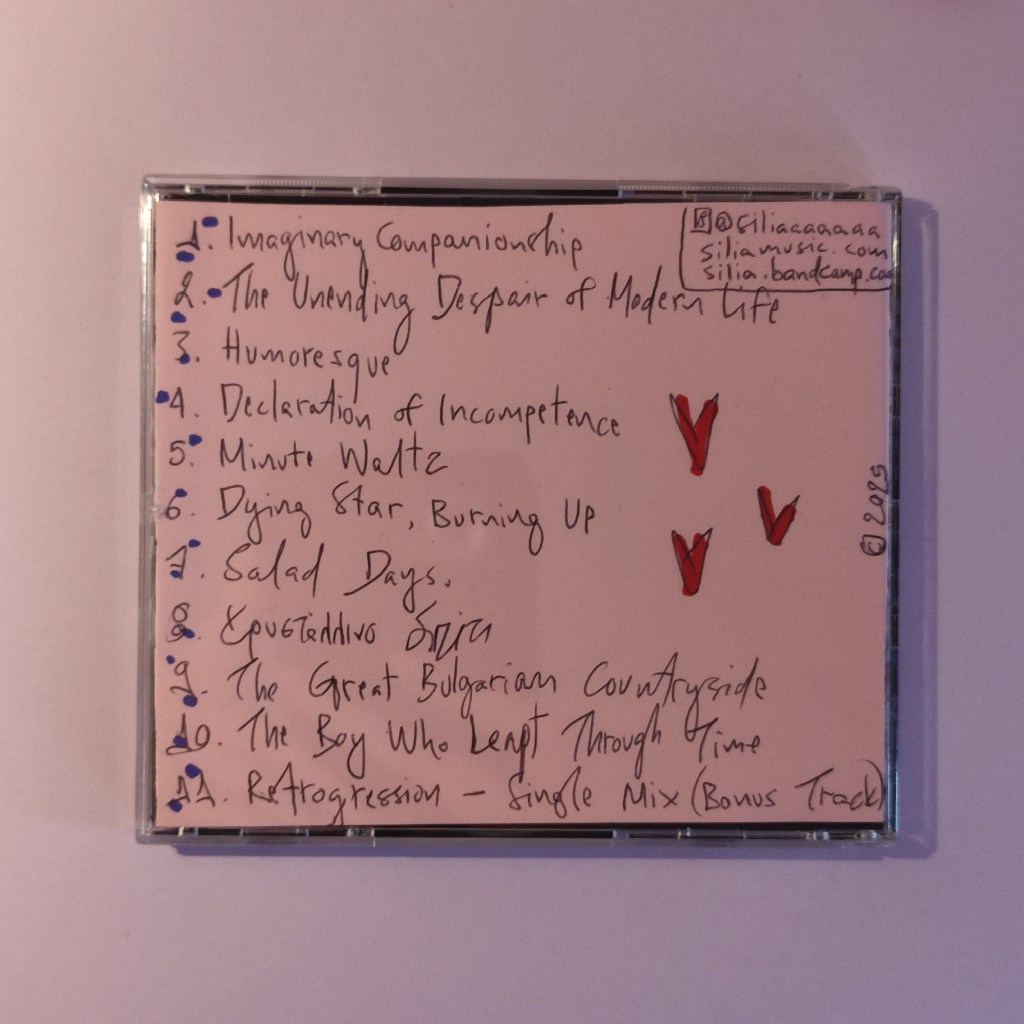 1. Imaginary Companionship
@siliaaaaaaa
siliamusic.com
silia.bandcamp.com
2. The Unending Despair of Modern Life
3. Humoresque
4. Declaration of Incompetence
5. Minute Waltz
6. Dying Star, Burning Up
7. Salad Days.
8. Χρυστάλλινο Σπίτι
9. The Great Bulgarian Countryside
10. The Boy Who Leapt Through Time
11. Retrogression – Single Mix (Bonus Track)
© 2025